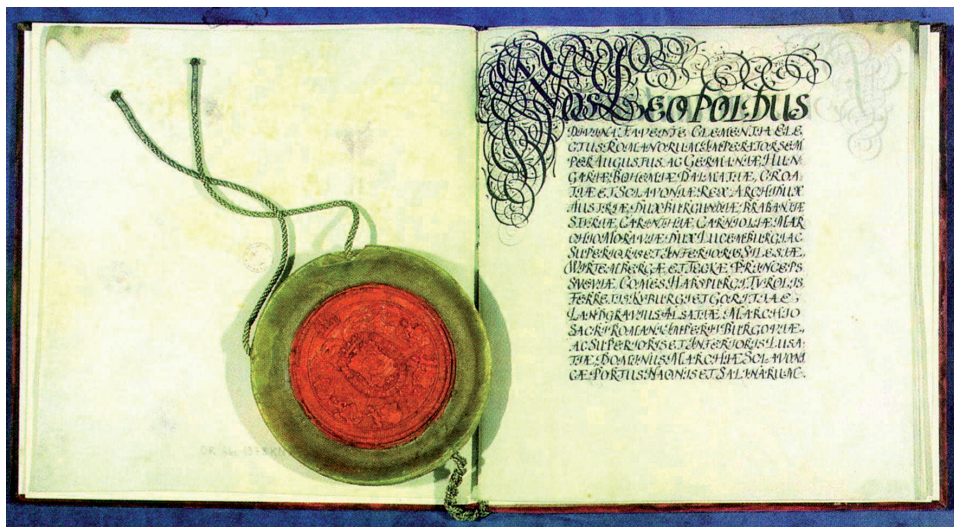 NOS LEOPOLDUS
DIVINA FAVENTE CLEMENTIA ELE
CTUS ROMANORUM IMPERATOR SEM
PER AUGUSTUS AC GERMANIÆ, HUN
GARIÆ, BOHEMIÆ, DALMATIÆ, CROA
TIÆ ET SCLAVONIÆ REX, ARCHIDUX
AUSTRIÆ, DUX BURGUNDIÆ, BRABANTIÆ
STYRIÆ, CARINTHIÆ, CARNIOLIÆ, MAR
CHIO MORAVIÆ, DUX LUCEMBURGI AC
SUPERIORIS ET INFERIORIS SILESIÆ,
WÜRTEMBERGÆ ET TECKÆ, PRINCEPS
SVEVIÆ, COMES HABSPURGI, TYROLIS
FERRETIS KYBURGI ET GORITIÆ
LANDGRAVIUS ALSATIÆ, MARCHIO
SACRI ROMANI IMPERII BURGOVIÆ,
AC SUPERIORIS ET INFERIORIS LUSA
TIÆ, DOMINUS MARCHIÆ SCLAVONI
CÆ, PORTUS NAONIS ET SALINARUM